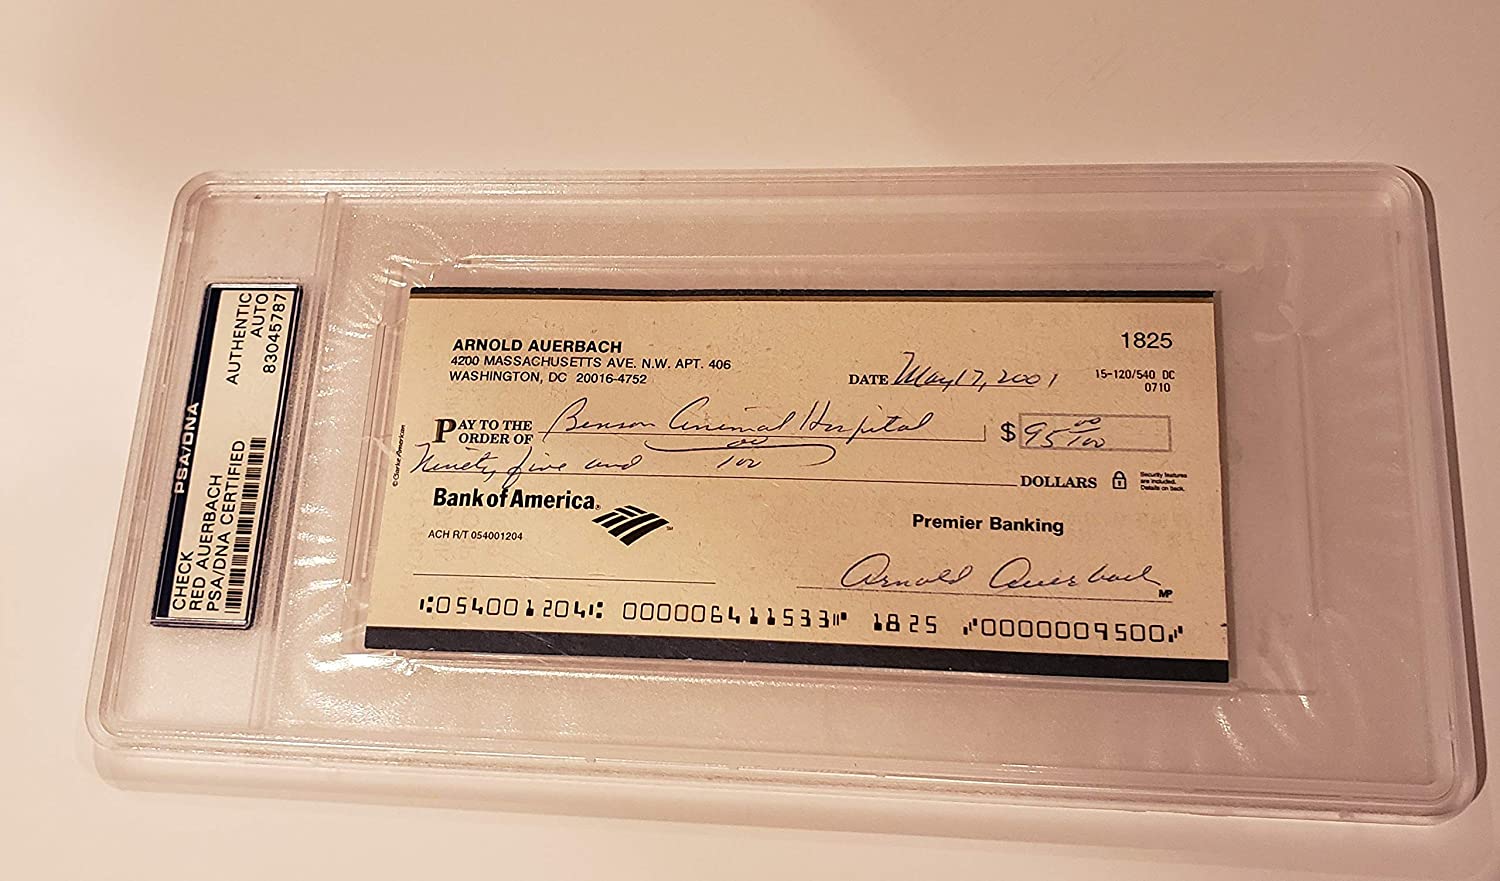 AUTHENTIC
AUTO
83045787
PSA/DNA
CHECK
RED AUERBACH
PSA/DNA CERTIFIED
ARNOLD AUERBACH
4200 MASSACHUSETTS AVE. N.W. APT. 406
WASHINGTON, DC 20016-4752
1825
DATE May 17, 2001
15-120/540 DC
0710
PAY TO THE
ORDER OF Benson Animal Hospital $ 95 00/100
Ninety five and 00/100 DOLLARS
Security features
are included.
Details on back.
© Clarke American
Bank of America®
SM
Premier Banking
ACH R/T 054001204
Arnold Auerbach
MP
⑆054001204⑆ 000006411533⑈ 1825 ⑇0000009500⑇